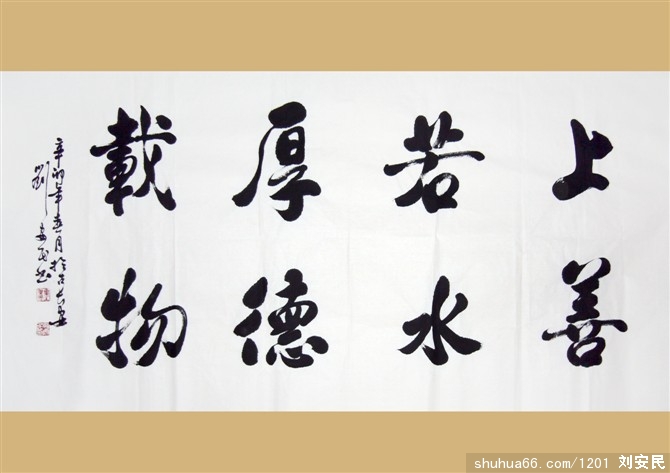 上善
若水
厚德
載物
辛卯年春月於古長安
劉安民書
shuhua66.com/1201 刘安民